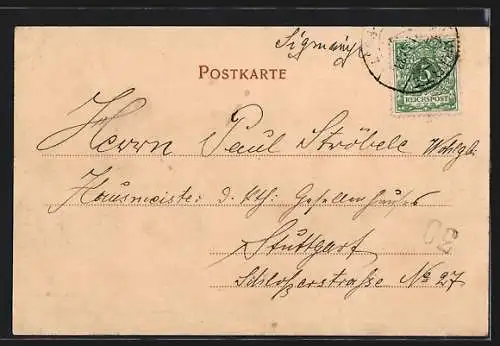 POSTKARTE
5
REICHSPOST
Herrn Paul Ströbele Wohlgb.
Hausmeister d. kth: Gesellenhauses
Stuttgart
Schloßerstraße No 27